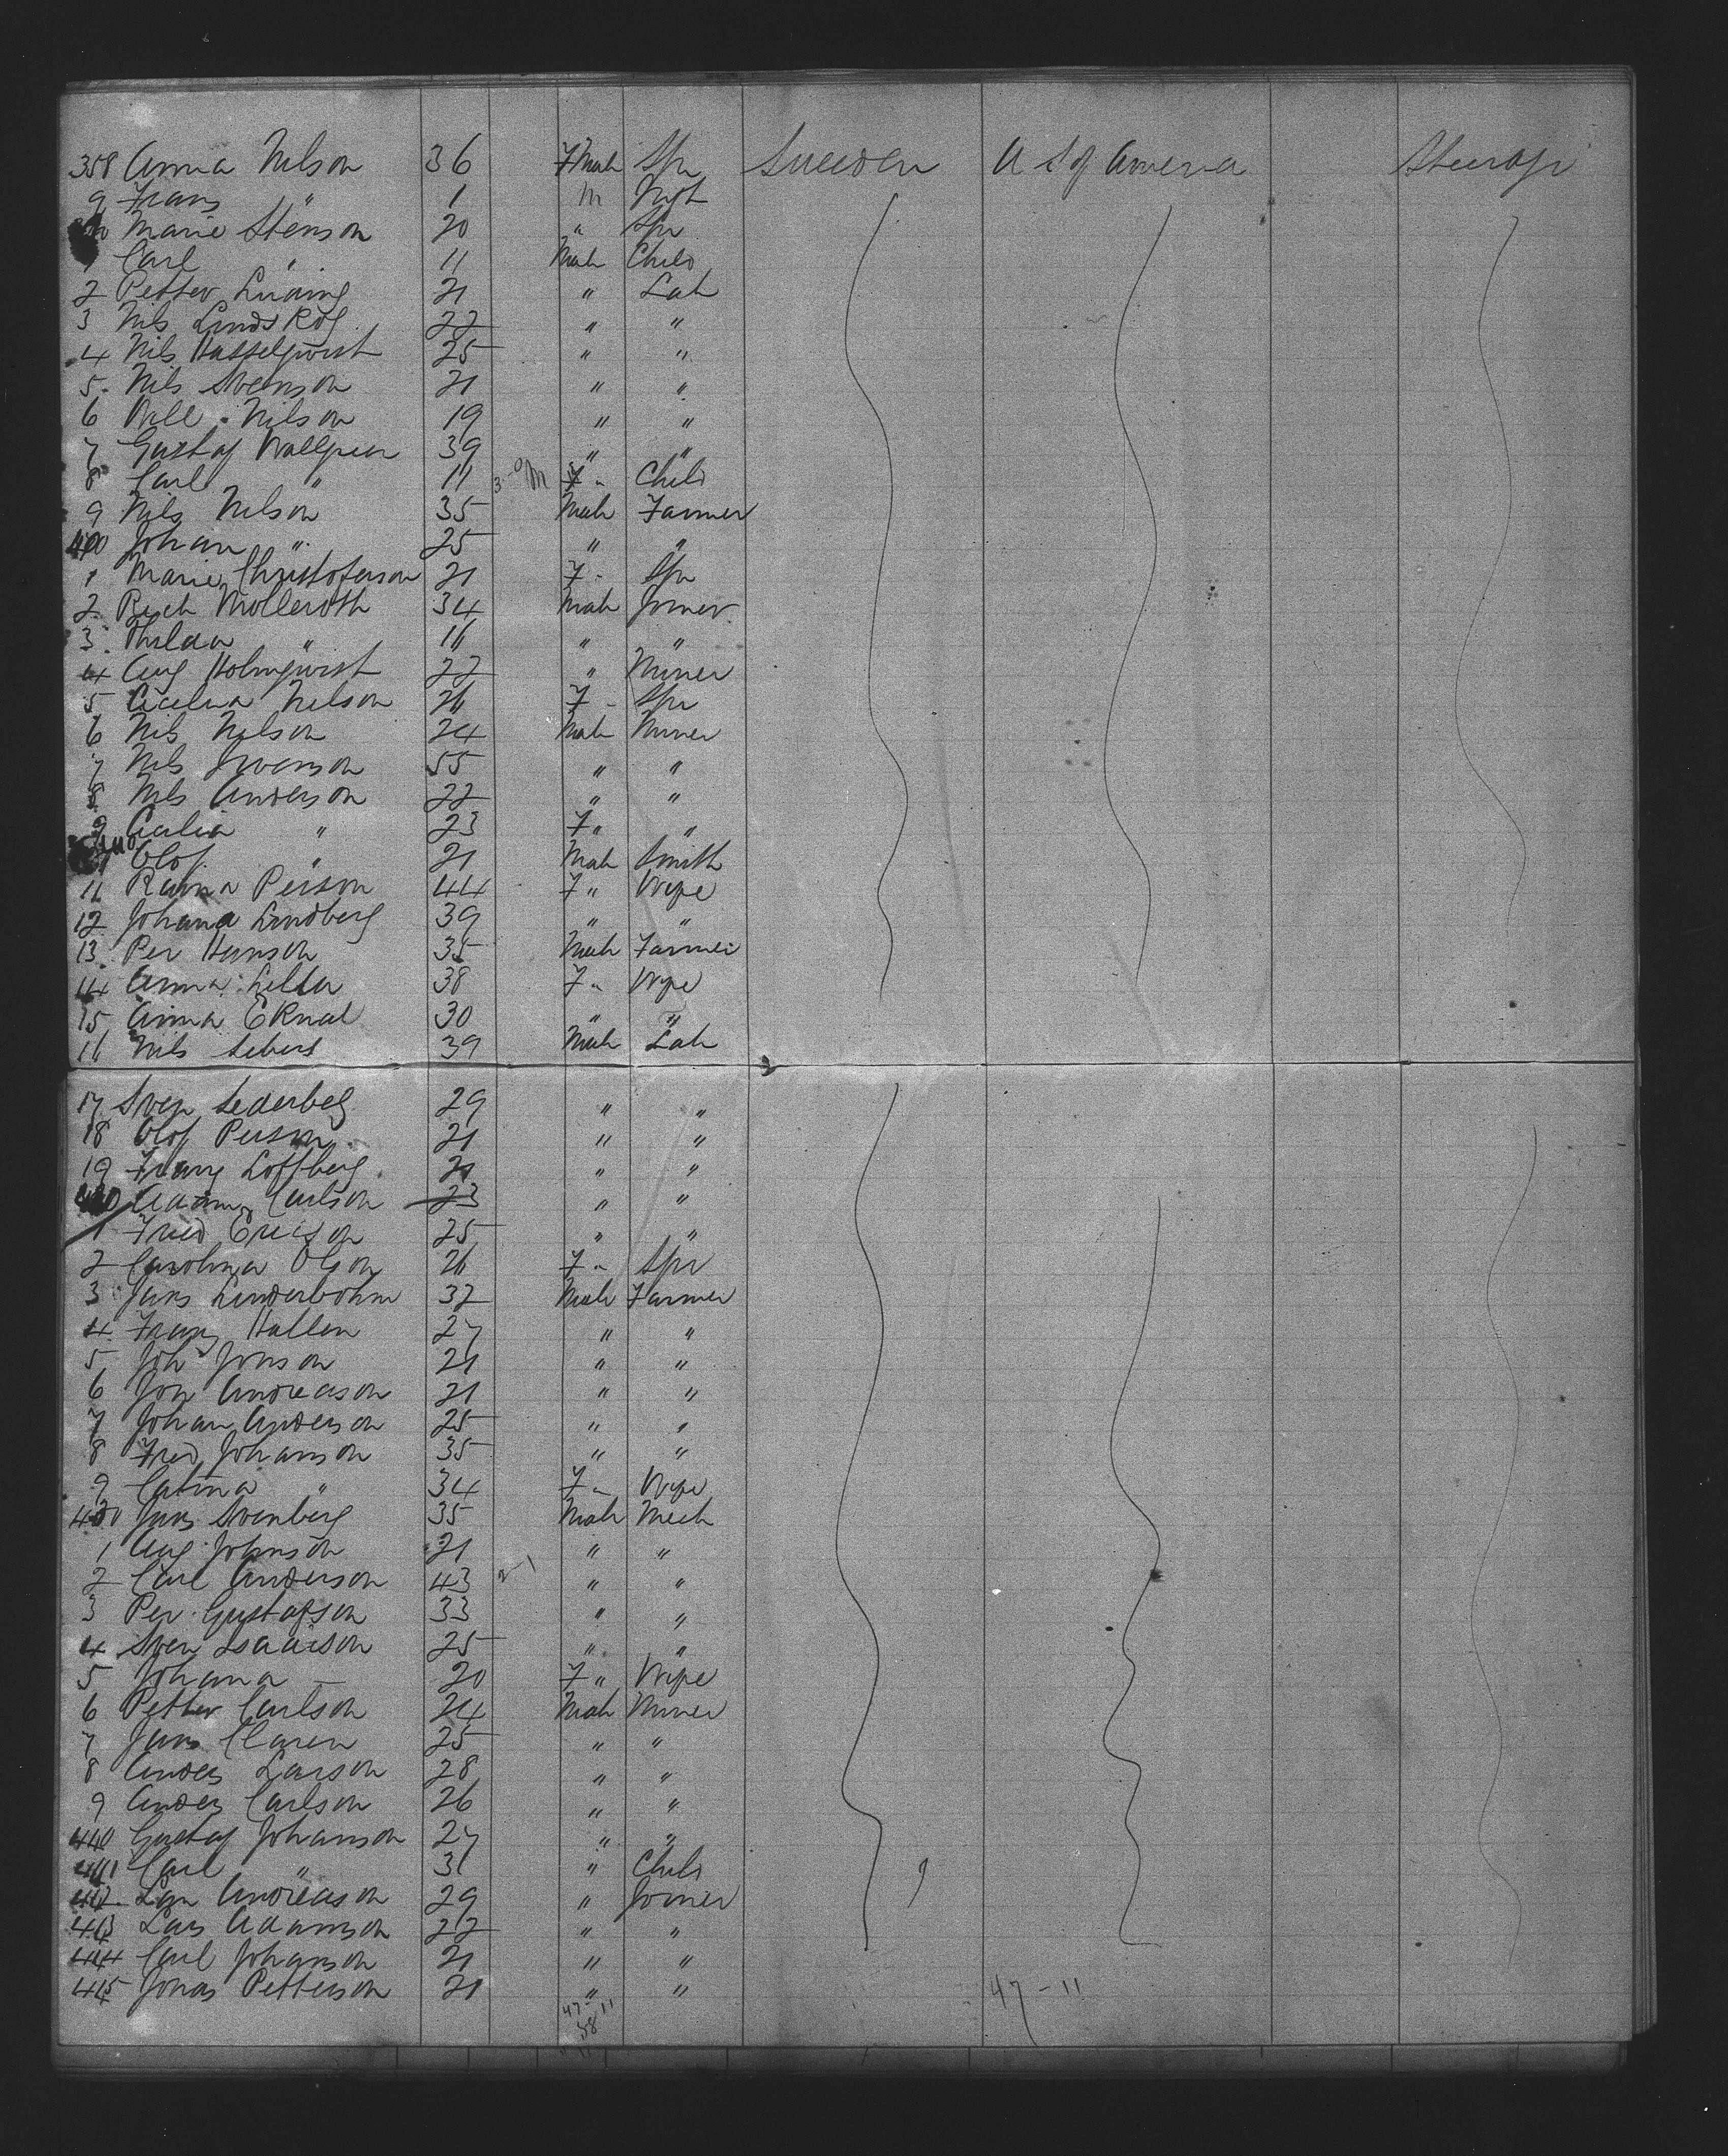 358 Anna Nilson 36 F Mah Spr Sweden U S of America Steerage
9 Frans " 1 m Inft
Marie Stenson 20 " Spr
1 Carl " 11 Mah Child
2 Petter 21 " Lab
3 Nils Lindskog 22 " "
4 Nils Hasselqwist 25 " "
5 Nils Svenson 21 " "
6 Nilson 19 " "
7 Gustaf Wallgren 39 " "
8 Carl " 11 F " Child
9 Nils Nilson 35 Mah Farmer
400 Johan " 25 " "
1 Marie Christoferson 21 F " Spr
2 Molleroth 34 Mah Joiner
3 Thilda " 11 " "
4 Aug Holmqwist 22 " Miner
5 Nelson 21 F " Spr
6 Nils Nilson 24 Mah Miner
7 Nils Swenson 55 " "
8 Nils Anderson 22 " "
9 " 23 F " "
Olof " 21 Mah Smith
11 Person 44 F " Wife
12 Johana Lindberg 39 " "
13 Per Hanson 35 Mah Farmer
14 Anna 38 F " Wife
15 Anna 30 " "
16 Nils 39 Mah Lab
17 Sven Sederbeg 29 " "
18 Olof Person 21 " "
19 Franz Loffberg 21 " "
420 Carlson 23 " "
1 Fred Ericson 25 " "
2 Carolina Olson 21 F " Spr
3 Jans Linderbohm 32 Mah Farmer
4 Franz Hallen 27 " "
5 Joh Jonson 21 " "
6 Jon Andreason 21 " "
7 Johan Anderson 25 " "
8 Fred Johanson 35 " "
9 Catina " 34 F " Wife
430 Jans Svenberg 35 Mah Mech
1 Aug Johnson 21 " "
2 Carl Anderson 43 " "
3 Per Gustafson 33 " "
4 Sven Isaacson 25 " "
5 Johana — 20 F " Wife
6 Petter Carlson 24 Mah Miner
7 Jans Claren 25 " "
8 Anders Larson 28 " "
9 Anders Carlson 26 " "
440 Gustaf Johanson 27 " "
441 Carl " 31 " Child
442 Andreason 29 " Joiner
443 Lars Adamson 22 " "
444 Carl Johanson 21 " "
445 Jonas Petterson 21 " "
47-11 47-11
58